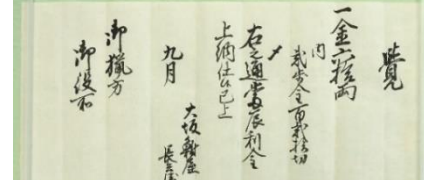 覚
一金六拾両
内
弐歩金百弐拾切
〆
右之通当辰利金
上納仕候已上
九月
大坂
御猟方
御役所